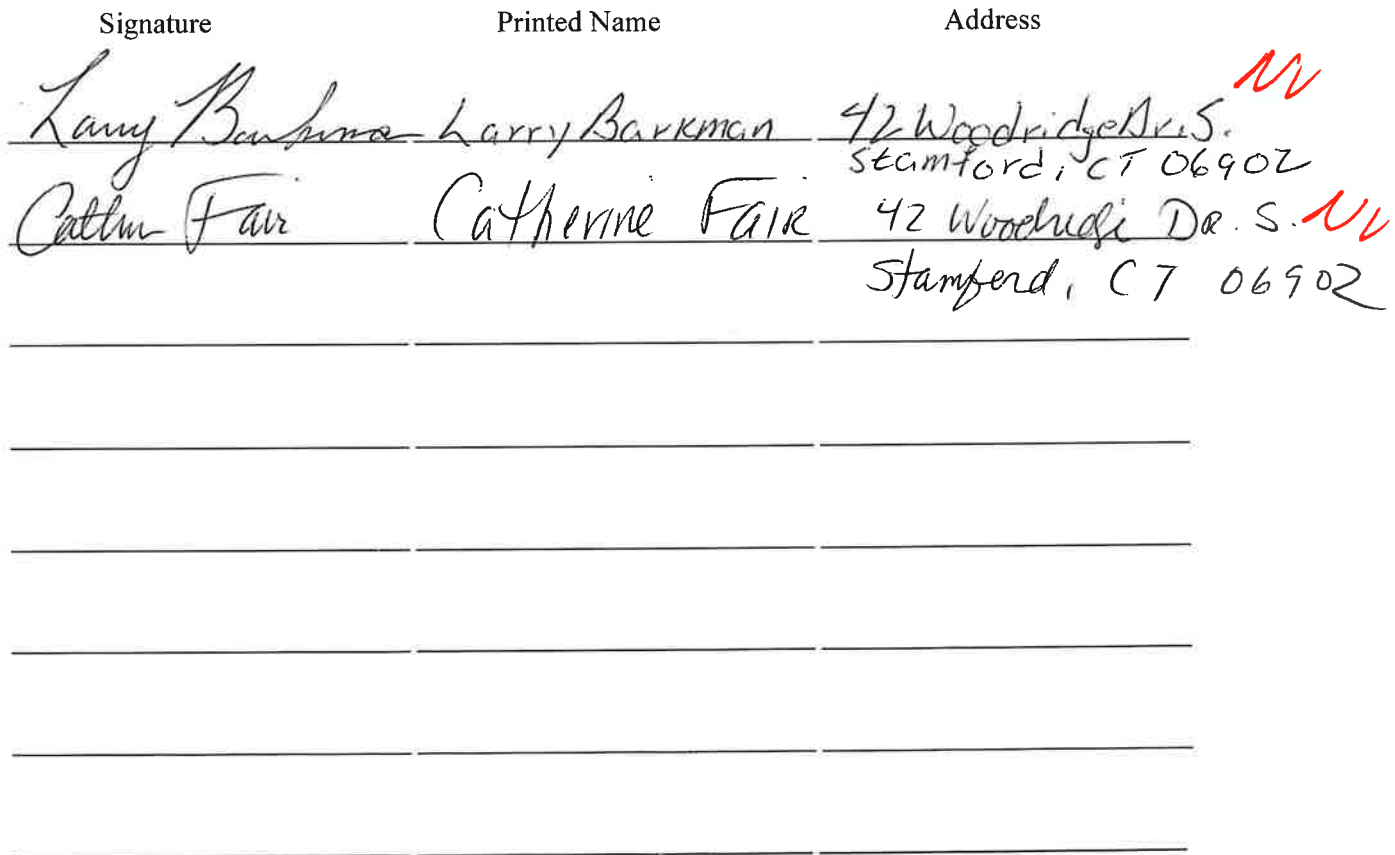 Signature Printed Name Address
NV
Larry Barkman Larry Barkman 42 Woodridge Dr. S.
Stamford, CT 06902
Fair Catherine Fair 42 Woodridge DR. S. NV
Stamford, CT 06902